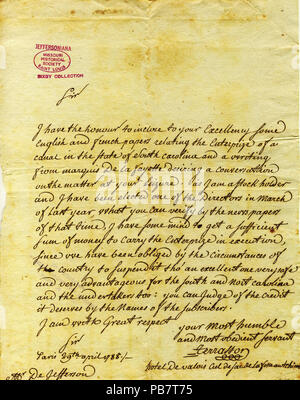 JEFFERSONIANA
MISSOURI
HISTORICAL
SOCIETY
SAINT LOUIS
BIXBY COLLECTION
Sir
I have the honour to inclose to your Excellency some
English and french papers relating the Enterprize of a
canal in the state of South Carolina and a writing
from marquis de la fayette desiring a conversation
on the matter at your leisure. as I am a stock holder
and I have been elected one of the Directors in March
of last year, what you can verify by the news papers
of that time. I have some mind to get a sufficient
sum of money to carry the Enterprize in execution,
since we have been obliged by the circumstances of
the country to suspend it tho an excellent one very safe
and very advantageous for the south and North carolina
and the undertakers too: you can judge of the credit
it deserves by the Names of the subscribers.
I am with Great respect
your Most humble
and Most obedient servant
Sir
Terrasson
Paris 29th april 1788
hotel de valois
Mr. De Jefferson
alamy
Image ID: PB7T75
www.alamy.com